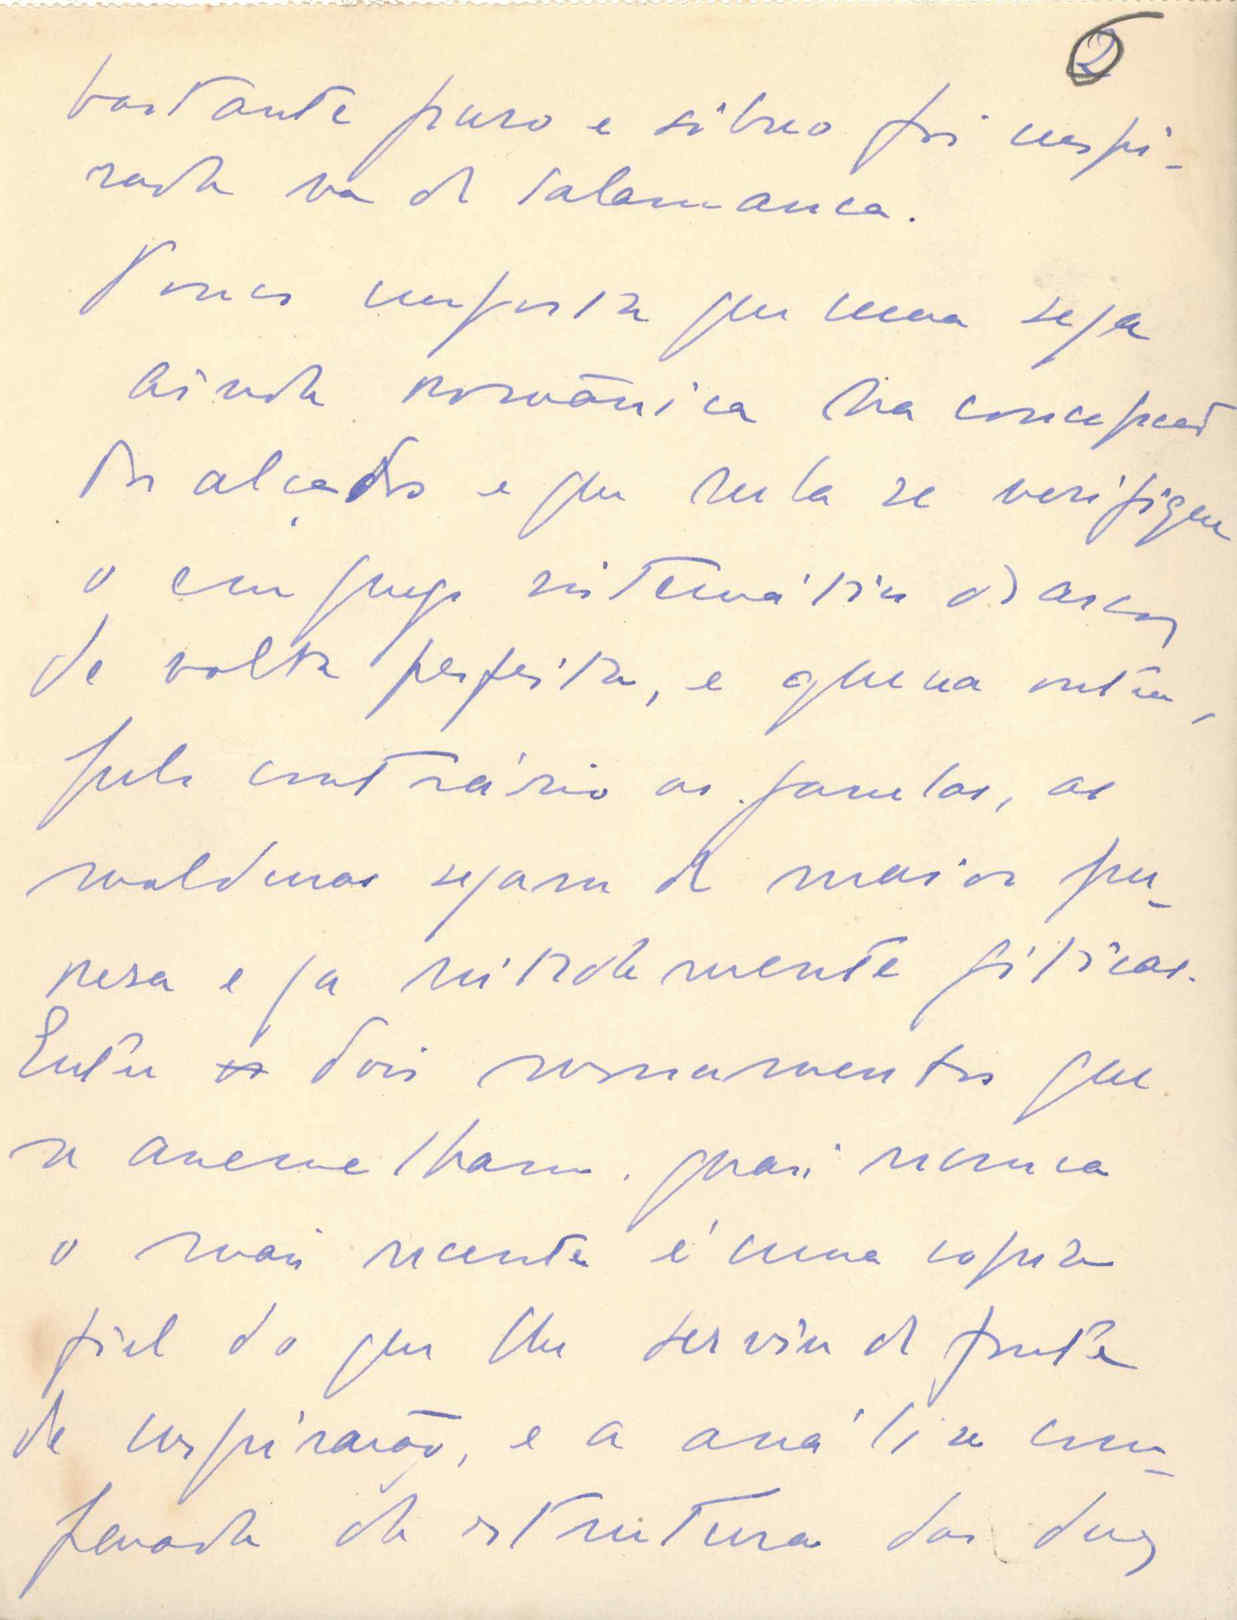 2
bastante puro e sóbrio foi inspi-
rada na de Salamanca.
Pouco importa que uma seja
ainda românica na concepção
dos alçados e que nela se verifique
o emprego sistemático dos arcos
de volta perfeita, e que na outra,
pelo contrário as janelas, as
molduras sejam de maior pu-
reza e já nitidamente góticas.
Entre dois monumentos que
se assemelham. quasi nunca
o mais recente é uma copia
fiel do que lhe serviu de fonte
de inspiração, e a análise com-
parada da estrutura das duas